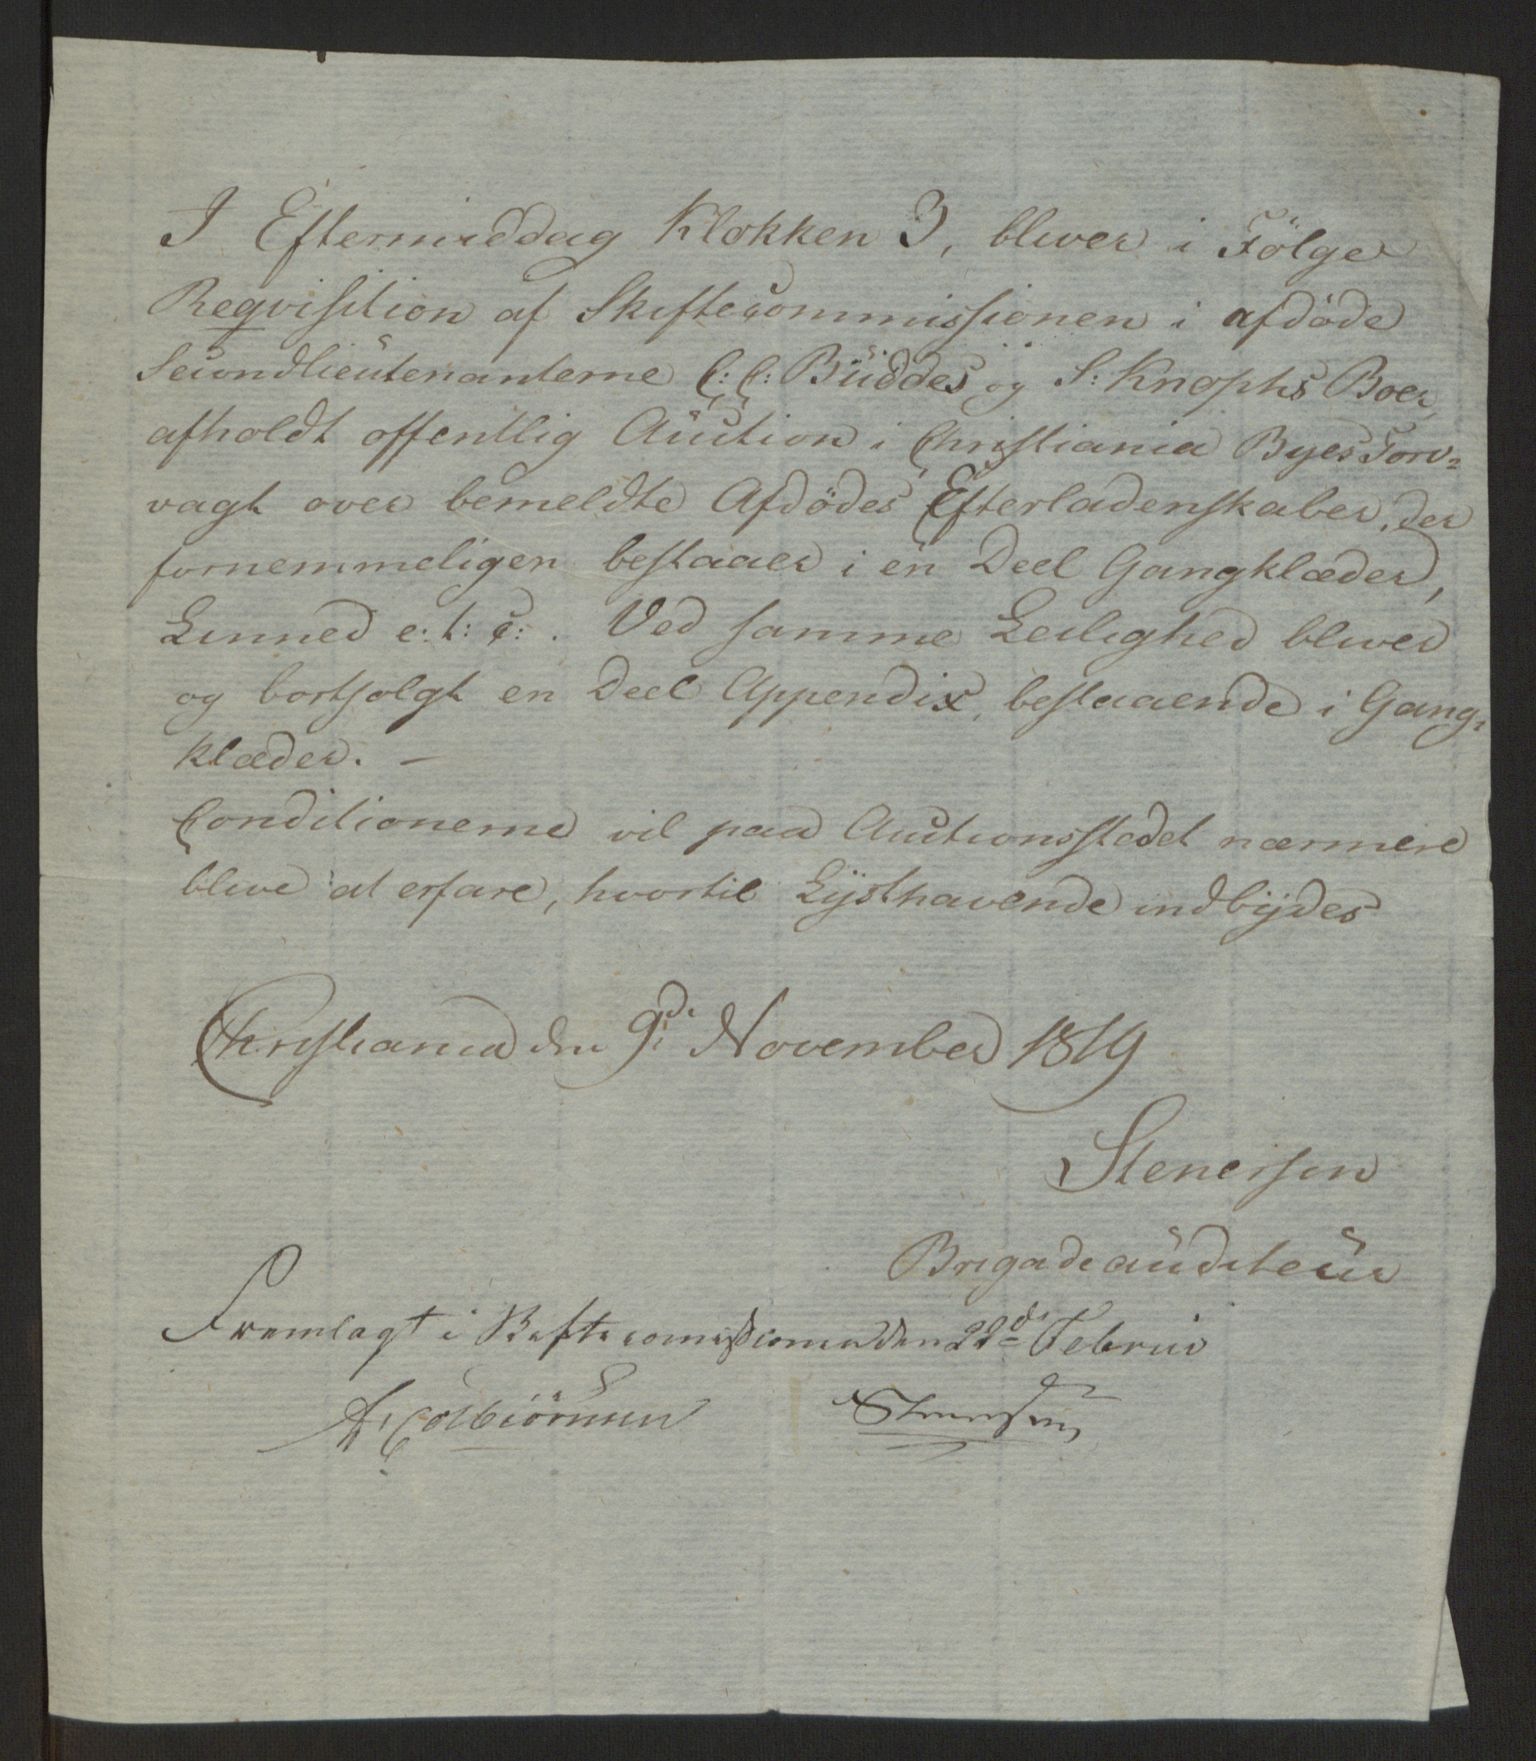 I Eftermiddag Klokken 3, bliver i Følge
Reqvisition af Skiftecommissionen i afdöde
Secondlieutenanterne C: C: Büddes og S: Knophs Boer,
afholdt offentlig Auction i Christiania Byes Torv=
vagt over bemeldte Afdödes Efterladenskaber, der
fornemmeligen bestaaer i en Deel Gangklæder,
Linned e: t: c: . Ved samme Leilighed bliver
og bortsolgt en Deel Appendix, bestaaende i Gang=
klæder. —
Conditionerne vil paa Auctionsstedet nærmere
blive at erfare, hvortil Lysthavende indbydes
Christiania den 9de November 1819
Stenersen
Brigadeauditeur
Fremlagt i Skiftecommissionen den 22de Februar
A. Colbiörnsen Stenersen